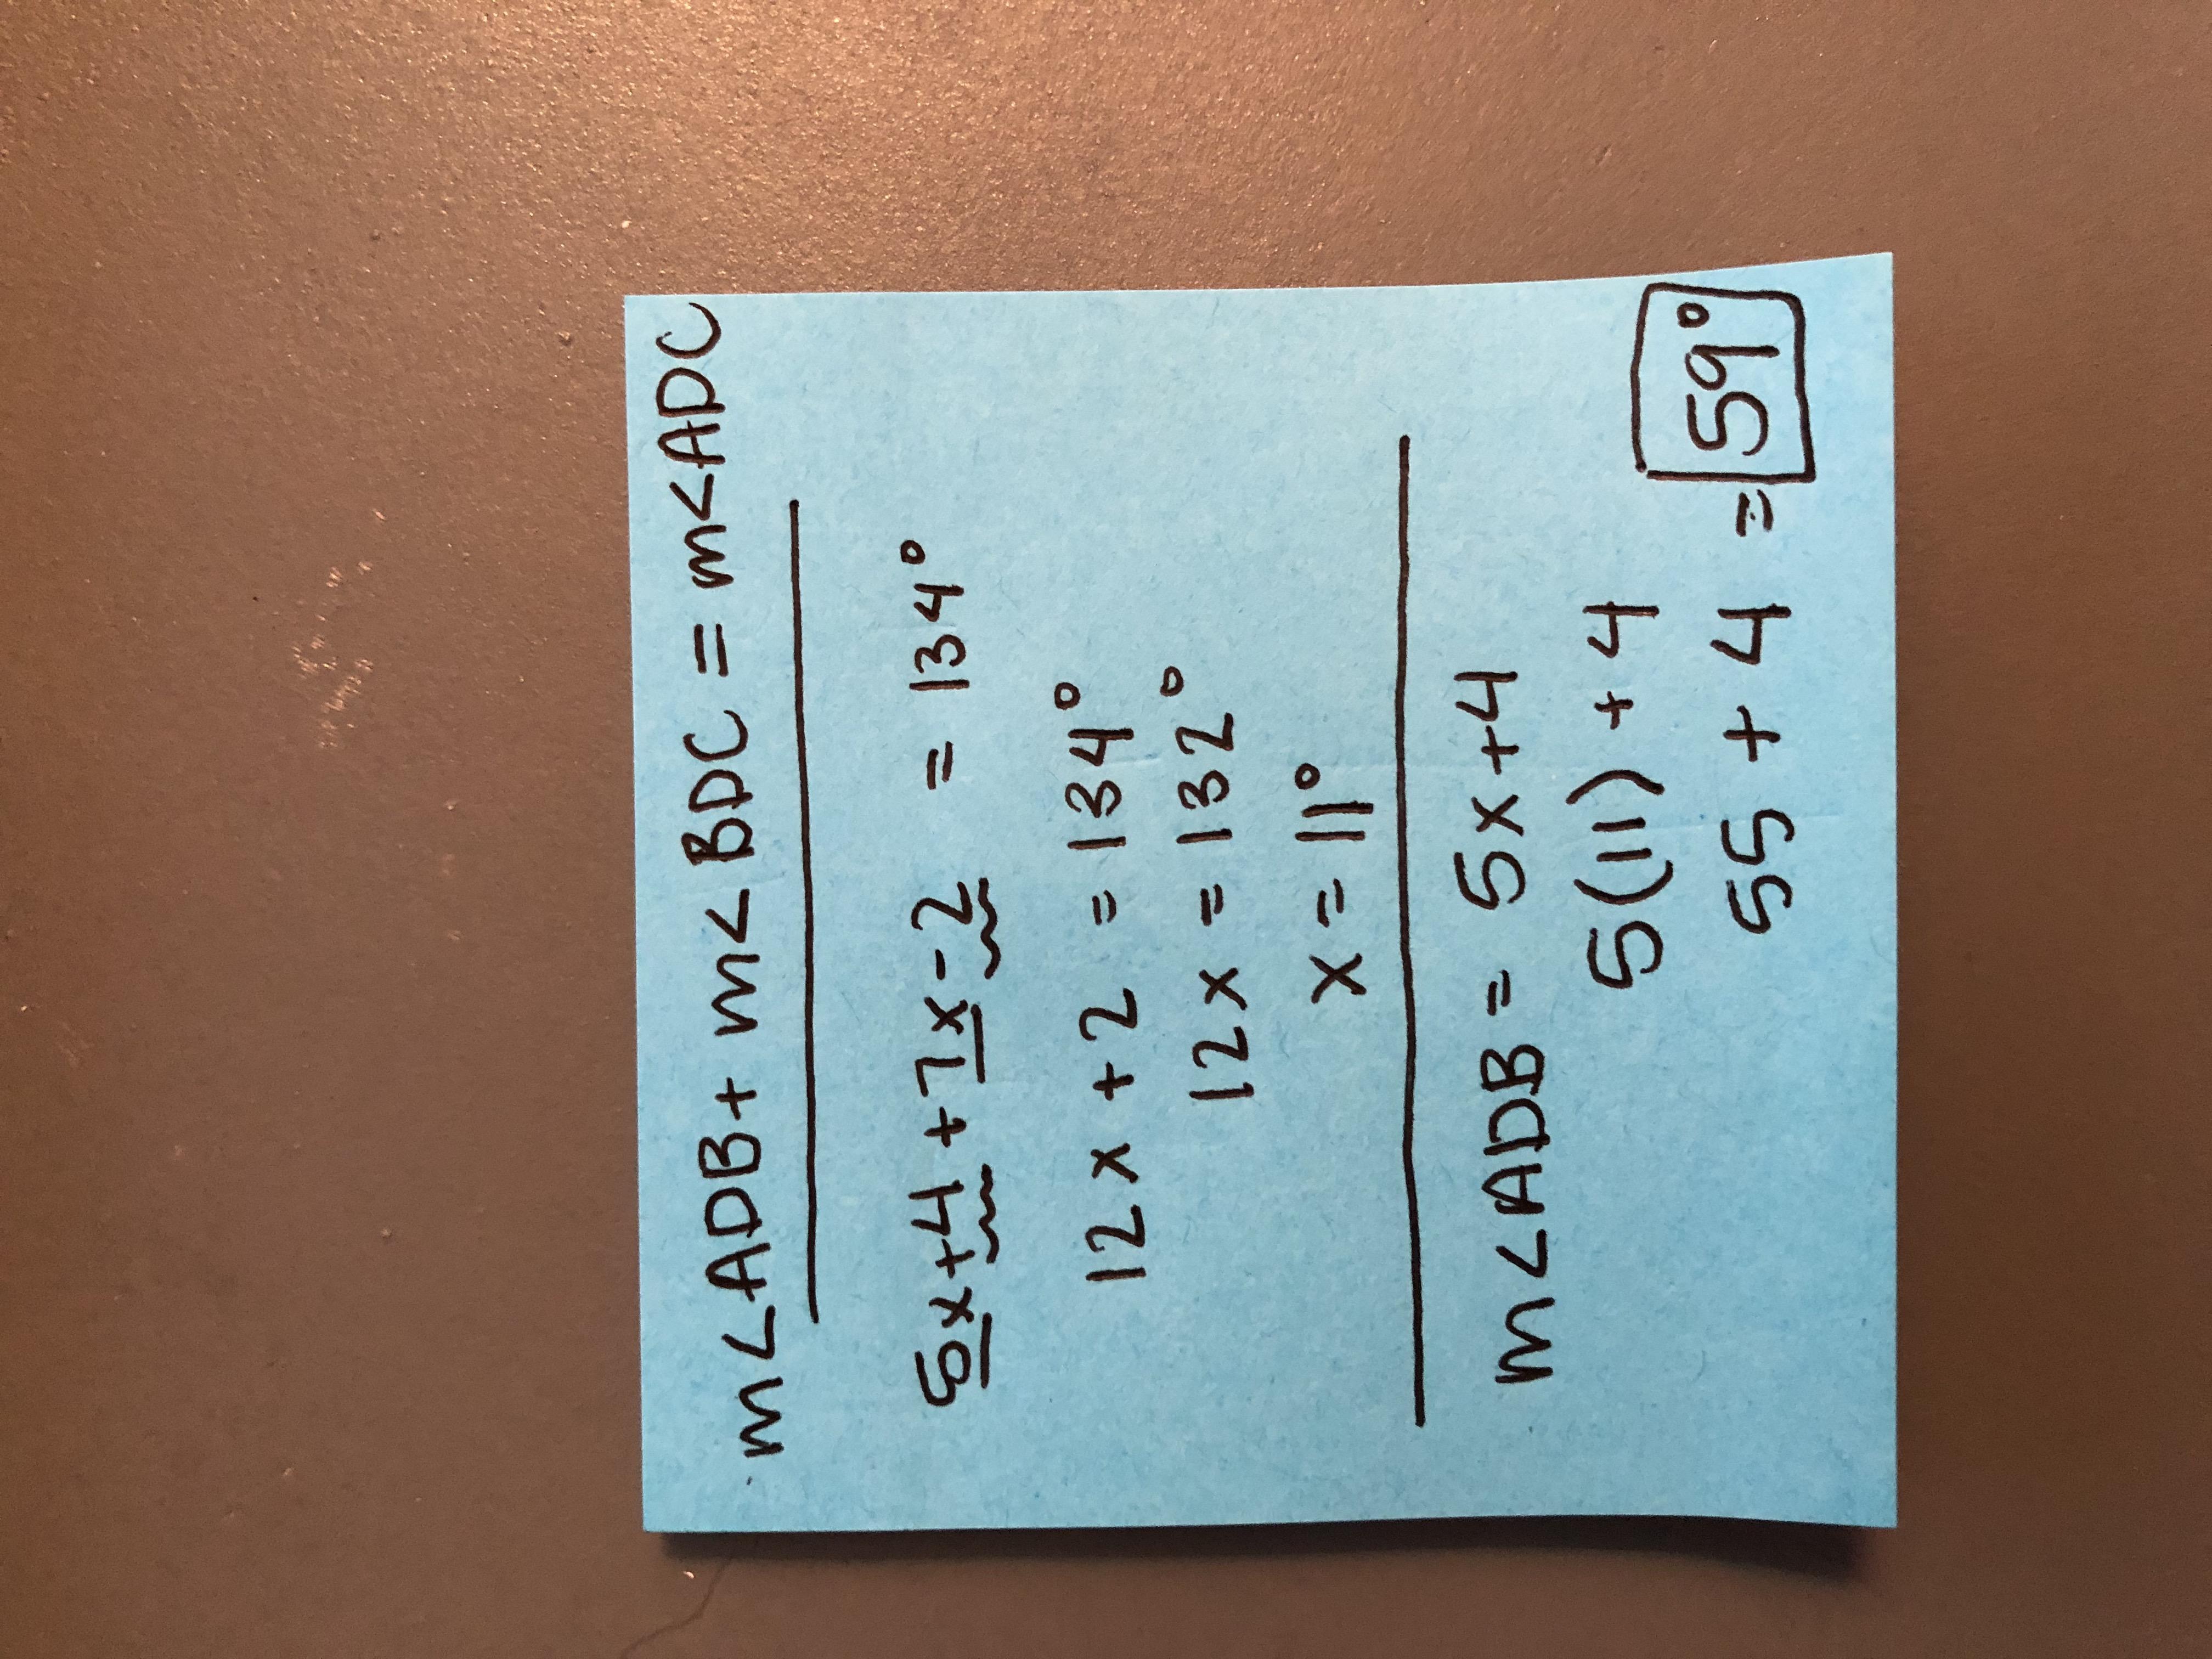 m<ADB + m<BDC = m<ADC
5x+4 + 7x-2 = 134°
12x + 2 = 134°
12x = 132°
x = 11°
m<ADB = 5x+4
5(11) + 4
55 + 4 = 59°